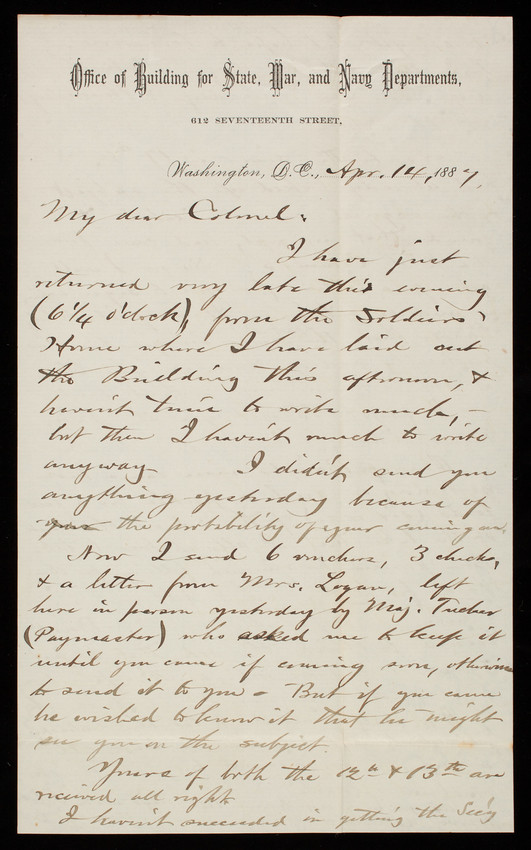 Office of Building for State, War, and Navy Departments,
612 SEVENTEENTH STREET,
Washington, D.C., Apr. 14, 1887,
My dear Colonel:
I have just
returned very late this evening
(6 1/4 o'clock), from the Soldiers'
Home where I have laid out
the Building this afternoon, &
haven't time to write much, –
but then I haven't much to write
anyway – I didn't send you
anything yesterday because of
your the probability of your coming on.
Now I send 6 vouchers, 3 checks,
& a letter from Mrs. Logan, left
here in person yesterday by Maj. Tucker
(Paymaster) who asked me to keep it
until you came if coming soon, otherwise
to send it to you – But if you came
he wished to know it that he might
see you on the subject.
Yours of both the 12th & 13th are
received all right
I haven't succeeded in getting the Sec'y